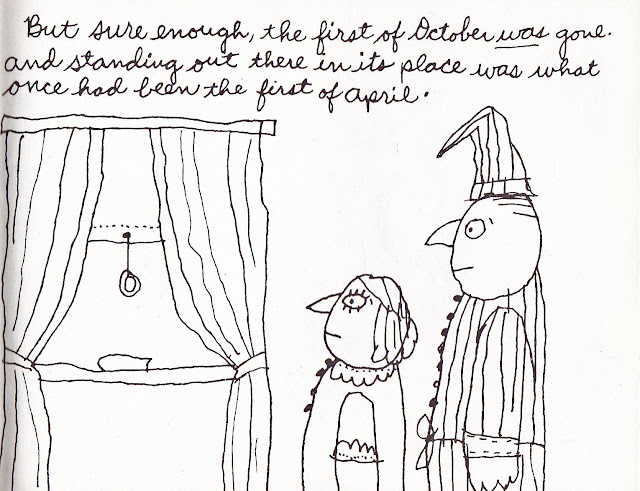 But sure enough, the first of October was gone.
and standing out there in its place was what
once had been the first of april.